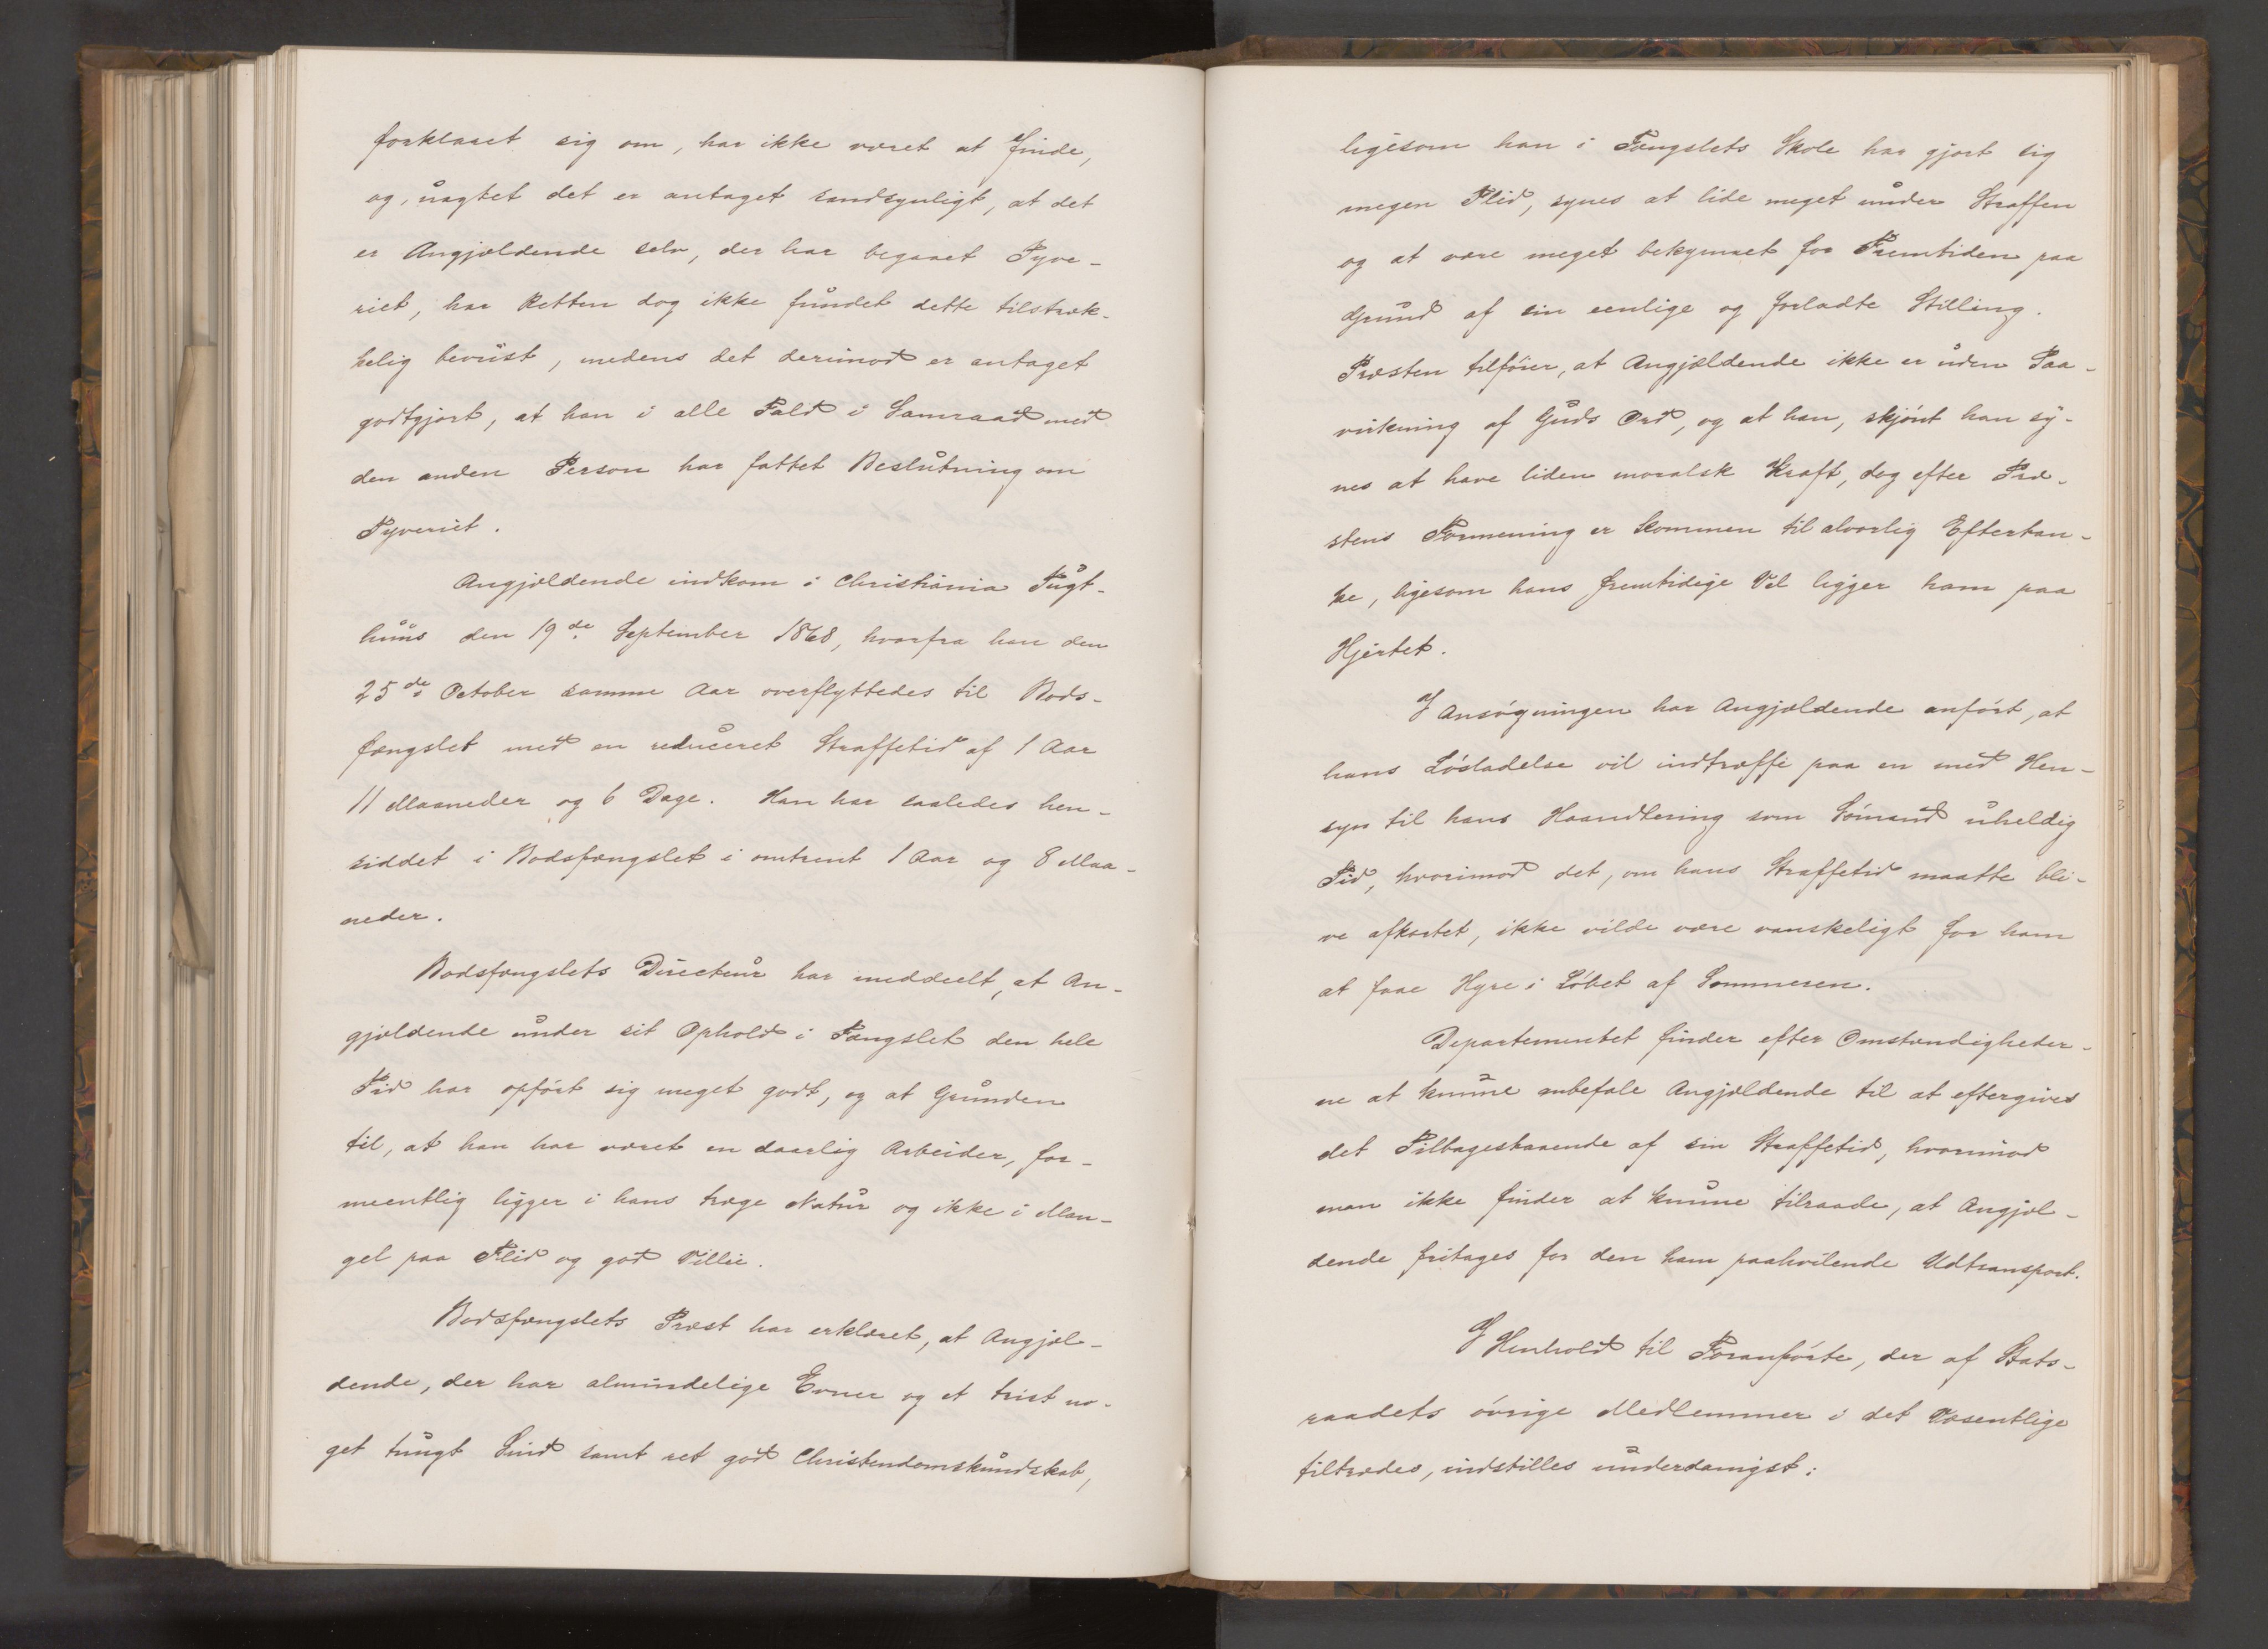 forklaret sig om, har ikke været at finde,
og, uagtet det er antaget sandsynligt, at det
er Angjældende selv, der har begaaet Tyve-
riet, har Retten dog ikke fundet dette tilstræk-
kelig beviist, medens det derimod er antaget
godtgjort, at han i alle Fald i Samraad med
den anden Person har fattet Beslutning om
Tyveriet.
Angjældende indkom i Christiania Tugt-
huus den 19de September 1868, hvorfra han den
25de October samme Aar overflyttedes til Bods-
fængslet med en reduceret Straffetid af 1 Aar
11 Maaneder og 6 Dage. Han har saaledes hen-
siddet i Bodsfængslet i omtrent 1 Aar og 8 Maa-
neder.
Bodsfængslets Directeur har meddeelt, at An-
gjældende under sit Ophold i Fængslet den hele
Tid har opført sig meget godt, og at Grunden
til, at han har været en daarlig Arbeider, for-
meentlig ligger i hans træge Natur og ikke i Man-
gel paa Flid og god Villie.
Bodsfængslets Præst har erklæret, at Angjæl-
dende, der har almindelige Evner og et trist no-
get tungt Sind samt ret god Christendomskundskab,
ligesom han i Fængslets Skole har gjort sig
megen Flid, synes at lide meget under Straffen
og at være meget bekymret for Fremtiden paa
Grund af sin eenlige og forladte Stilling.
Præsten tilføier, at Angjældende ikke er uden Paa-
virkning af Guds Ord, og at han, skjønt han sy-
nes at have liden moralsk Kraft, dog efter Præ-
stens Formening er kommen til alvorlig Eftertan-
ke, ligesom hans fremtidige Vel ligger ham paa
Hjertet.
I Ansøgningen har Angjældende anført, at
hans Løsladelse vil indtræffe paa en med Hen-
syn til hans Haandtering som Sømand uheldig
Tid, hvorimod det, om hans Straffetid maatte bli-
ve afkortet, ikke vilde være vanskeligt for ham
at faae Hyre i Løbet af Sommeren.
Departementet finder efter Omstændigheder-
ne at kunne anbefale Angjældende til at eftergives
det Tilbagestaaende af sin Straffetid, hvorimod
man ikke finder at kunne tilraade, at Angjæl-
dende fritages for den ham paahvilende Udtransport.
I Henhold til Foranførte, der af Stats-
raadets øvrige Medlemmer i det Væsentlige
tiltrædes, indstilles underdanigst: